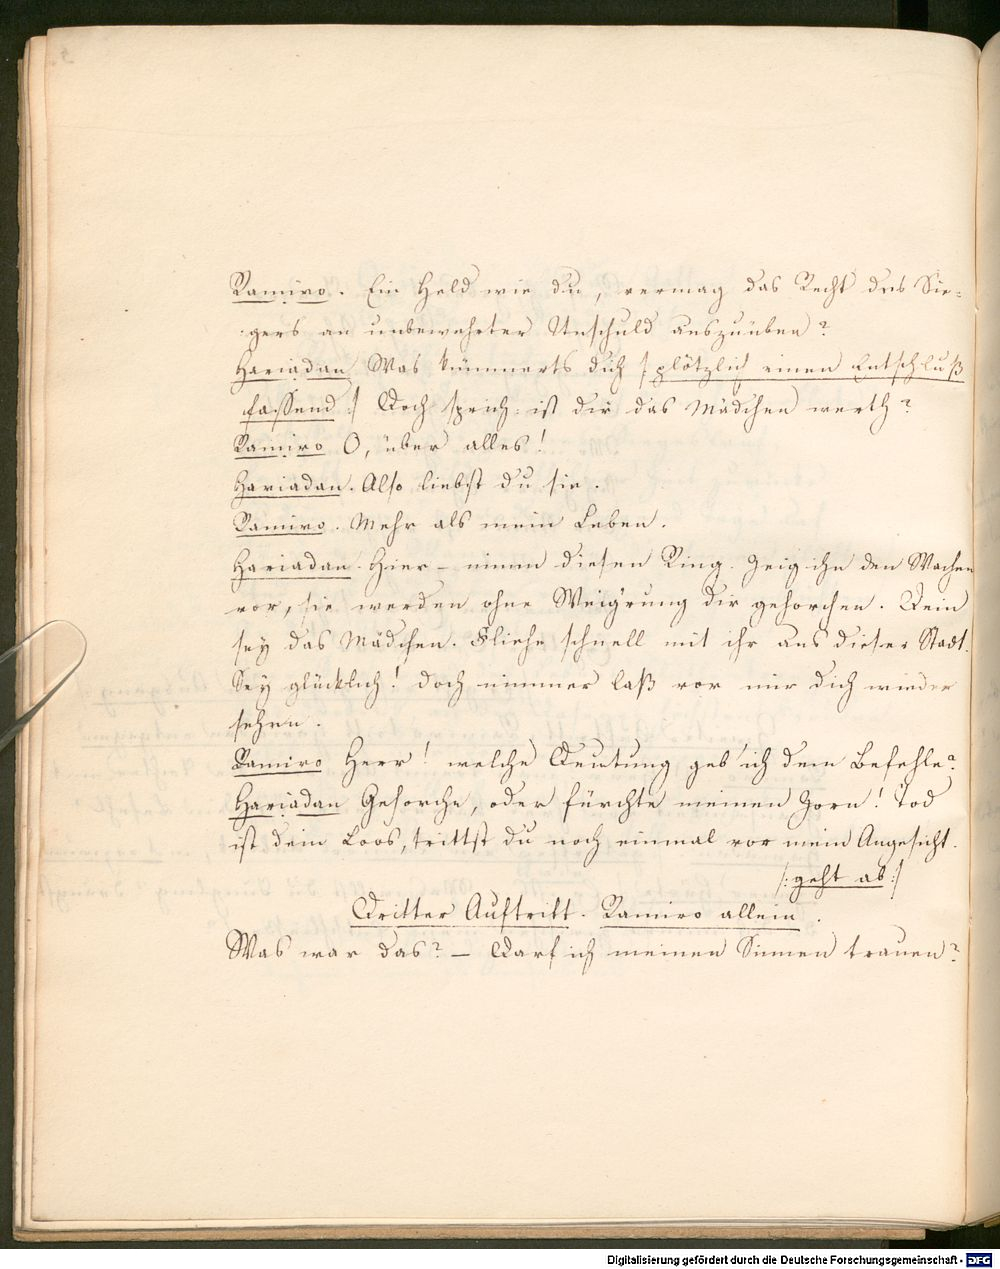 Ramiro. Ein Held wie du, vermag das Recht des Sie=
gers an unbewehrter Unschuld auszuüben?
Hariadan. Was kümmerts dich /: plötzlich einen Entschluß
fassend :/ Doch sprich: ist dir das Mädchen werth?
Ramiro O, über alles!
Hariadan. Also liebst du sie.
Ramiro. Mehr als mein Leben.
Hariadan. Hier – nimm diesen Ring. Zeig ihn den Wachen
vor, sie werden ohne Weig'rung dir gehorchen. Dein
sey das Mädchen. Fliehe schnell mit ihr aus dieser Stadt.
Sey glücklich! doch nimmer laß vor mir dich wieder
sehen.
Ramiro Herr! welche Deutung geb' ich dem Befehle?
Hariadan Gehorche, oder fürchte meinen Zorn! Tod
ist dein Loos, trittst du noch einmal vor mein Angesicht.
/: geht ab :/
Dritter Auftritt. Ramiro allein.
Was war das? – Darf ich meinen Sinnen trauen?
Digitalisierung gefördert durch die Deutsche Forschungsgemeinschaft - DFG